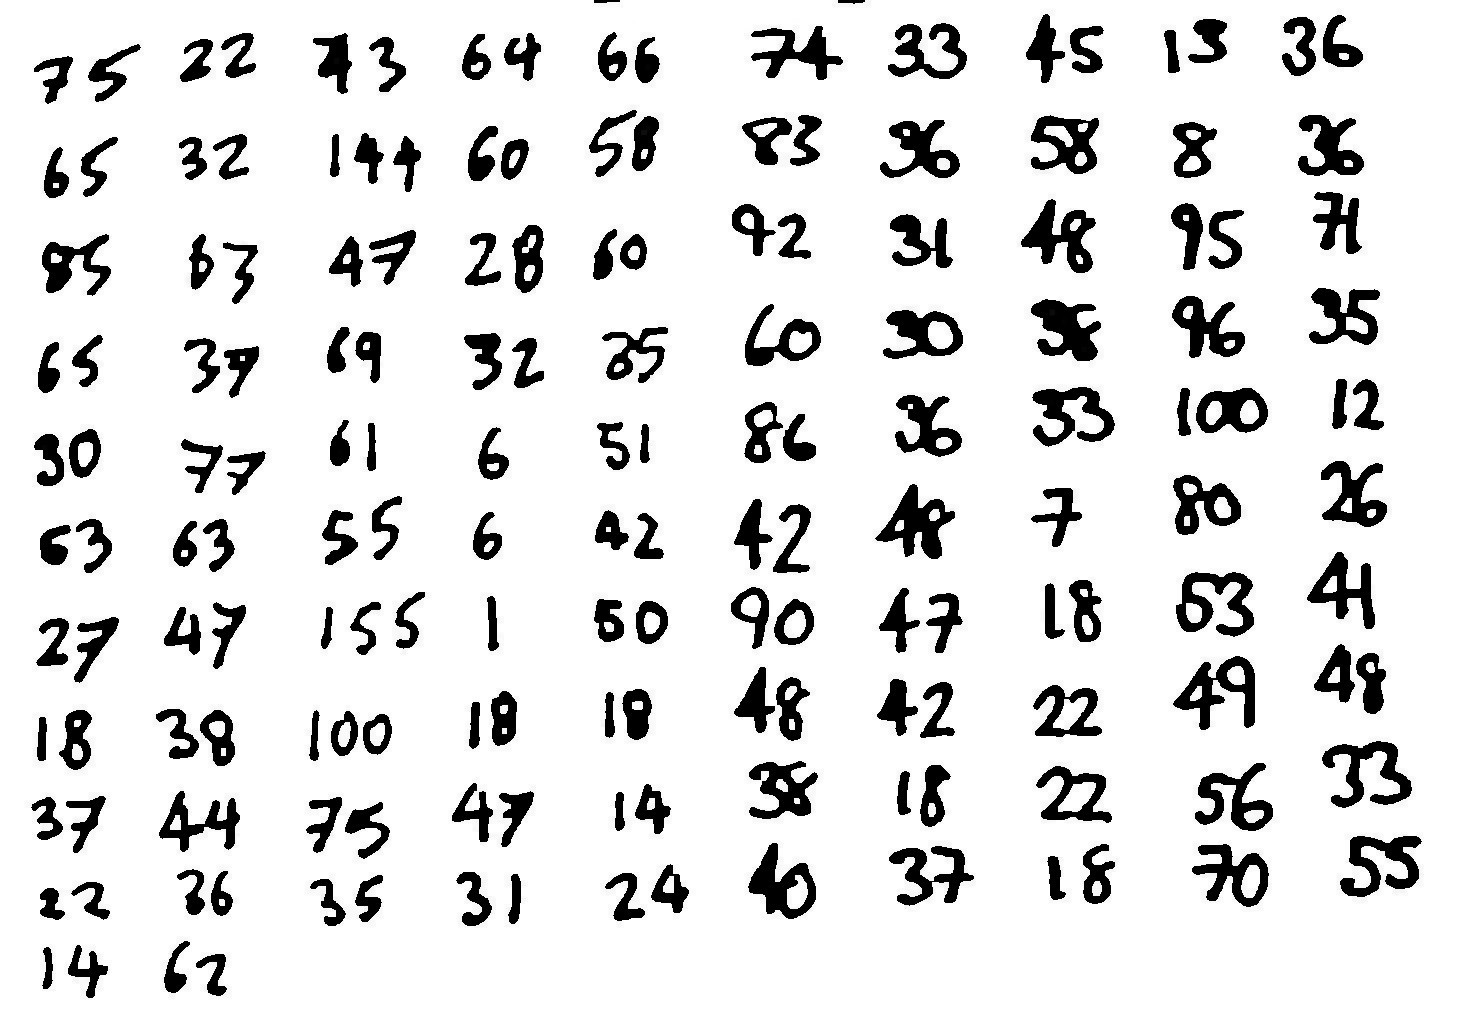 75 22 43 64 66 74 33 45 13 36
65 32 144 60 58 83 36 58 8 36
85 63 47 28 60 92 31 48 95 71
65 37 69 32 35 60 30 38 96 35
30 77 61 6 51 86 36 33 100 12
63 63 55 6 42 42 48 7 80 26
27 47 155 1 50 90 47 18 53 41
18 38 100 18 18 48 42 22 49 48
37 44 75 47 14 38 18 22 56 33
22 36 35 31 24 40 37 18 70 55
14 62